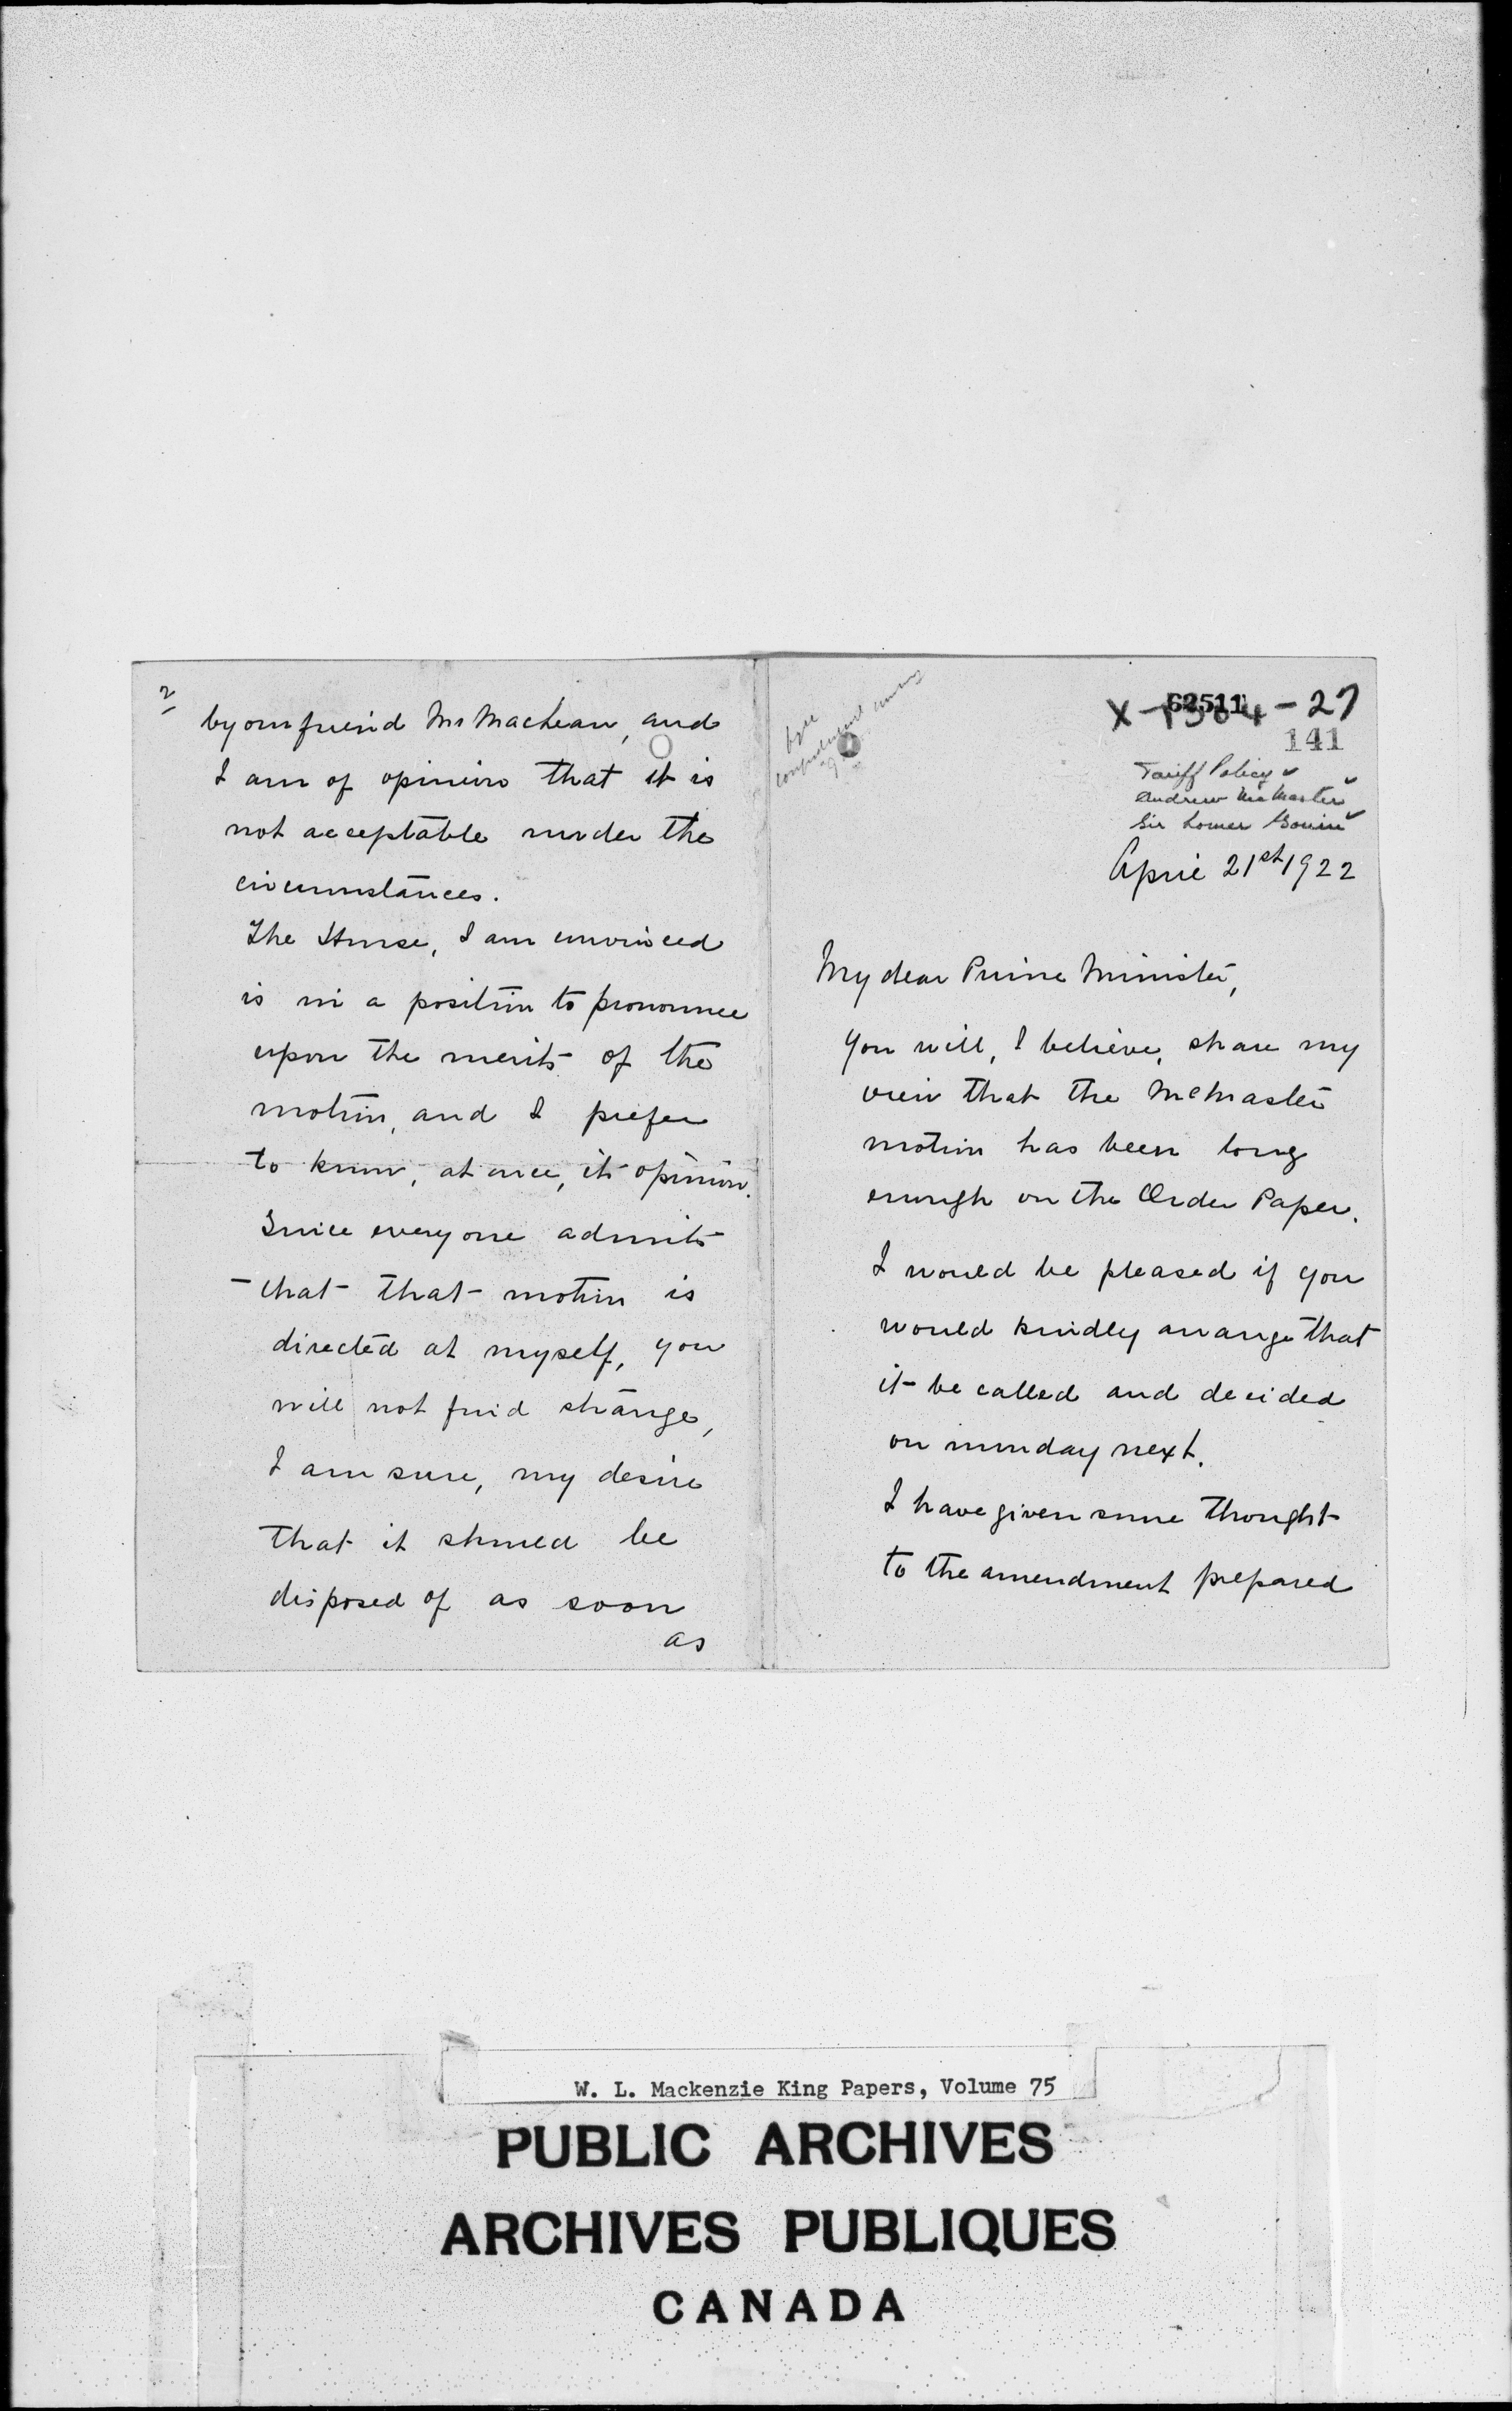 X-1564-27
62511
141
Tariff Policy
Andrew McMaster
Sir Lomer Gouin
April 21st 1922
My dear Prime Minister,
You will, I believe, share my
view that the McMaster
motion has been long
enough on the Order Paper.
I would be pleased if you
would kindly arrange that
it be called and decided
on monday next.
I have given some thought
to the amendment prepared
2
by our friend Mr Maclean, and
I am of opinion that it is
not acceptable under the
circumstances.
The House, I am convinced
is in a position to pronounce
upon the merits of the
motion, and I prefer
to know, at once, its opinion.
Since everyone admits
that that motion is
directed at myself, you
will not find strange,
I am sure, my desire
that it should be
disposed of as soon
as
W. L. Mackenzie King Papers, Volume 75
PUBLIC ARCHIVES
ARCHIVES PUBLIQUES
CANADA